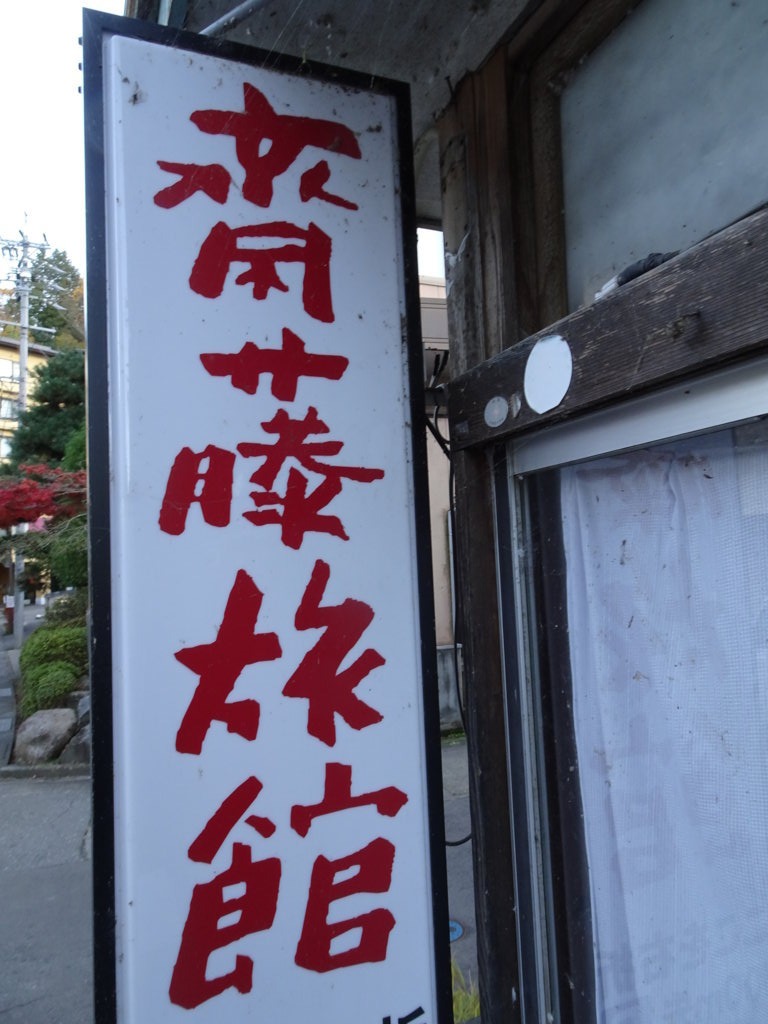 齋藤旅館